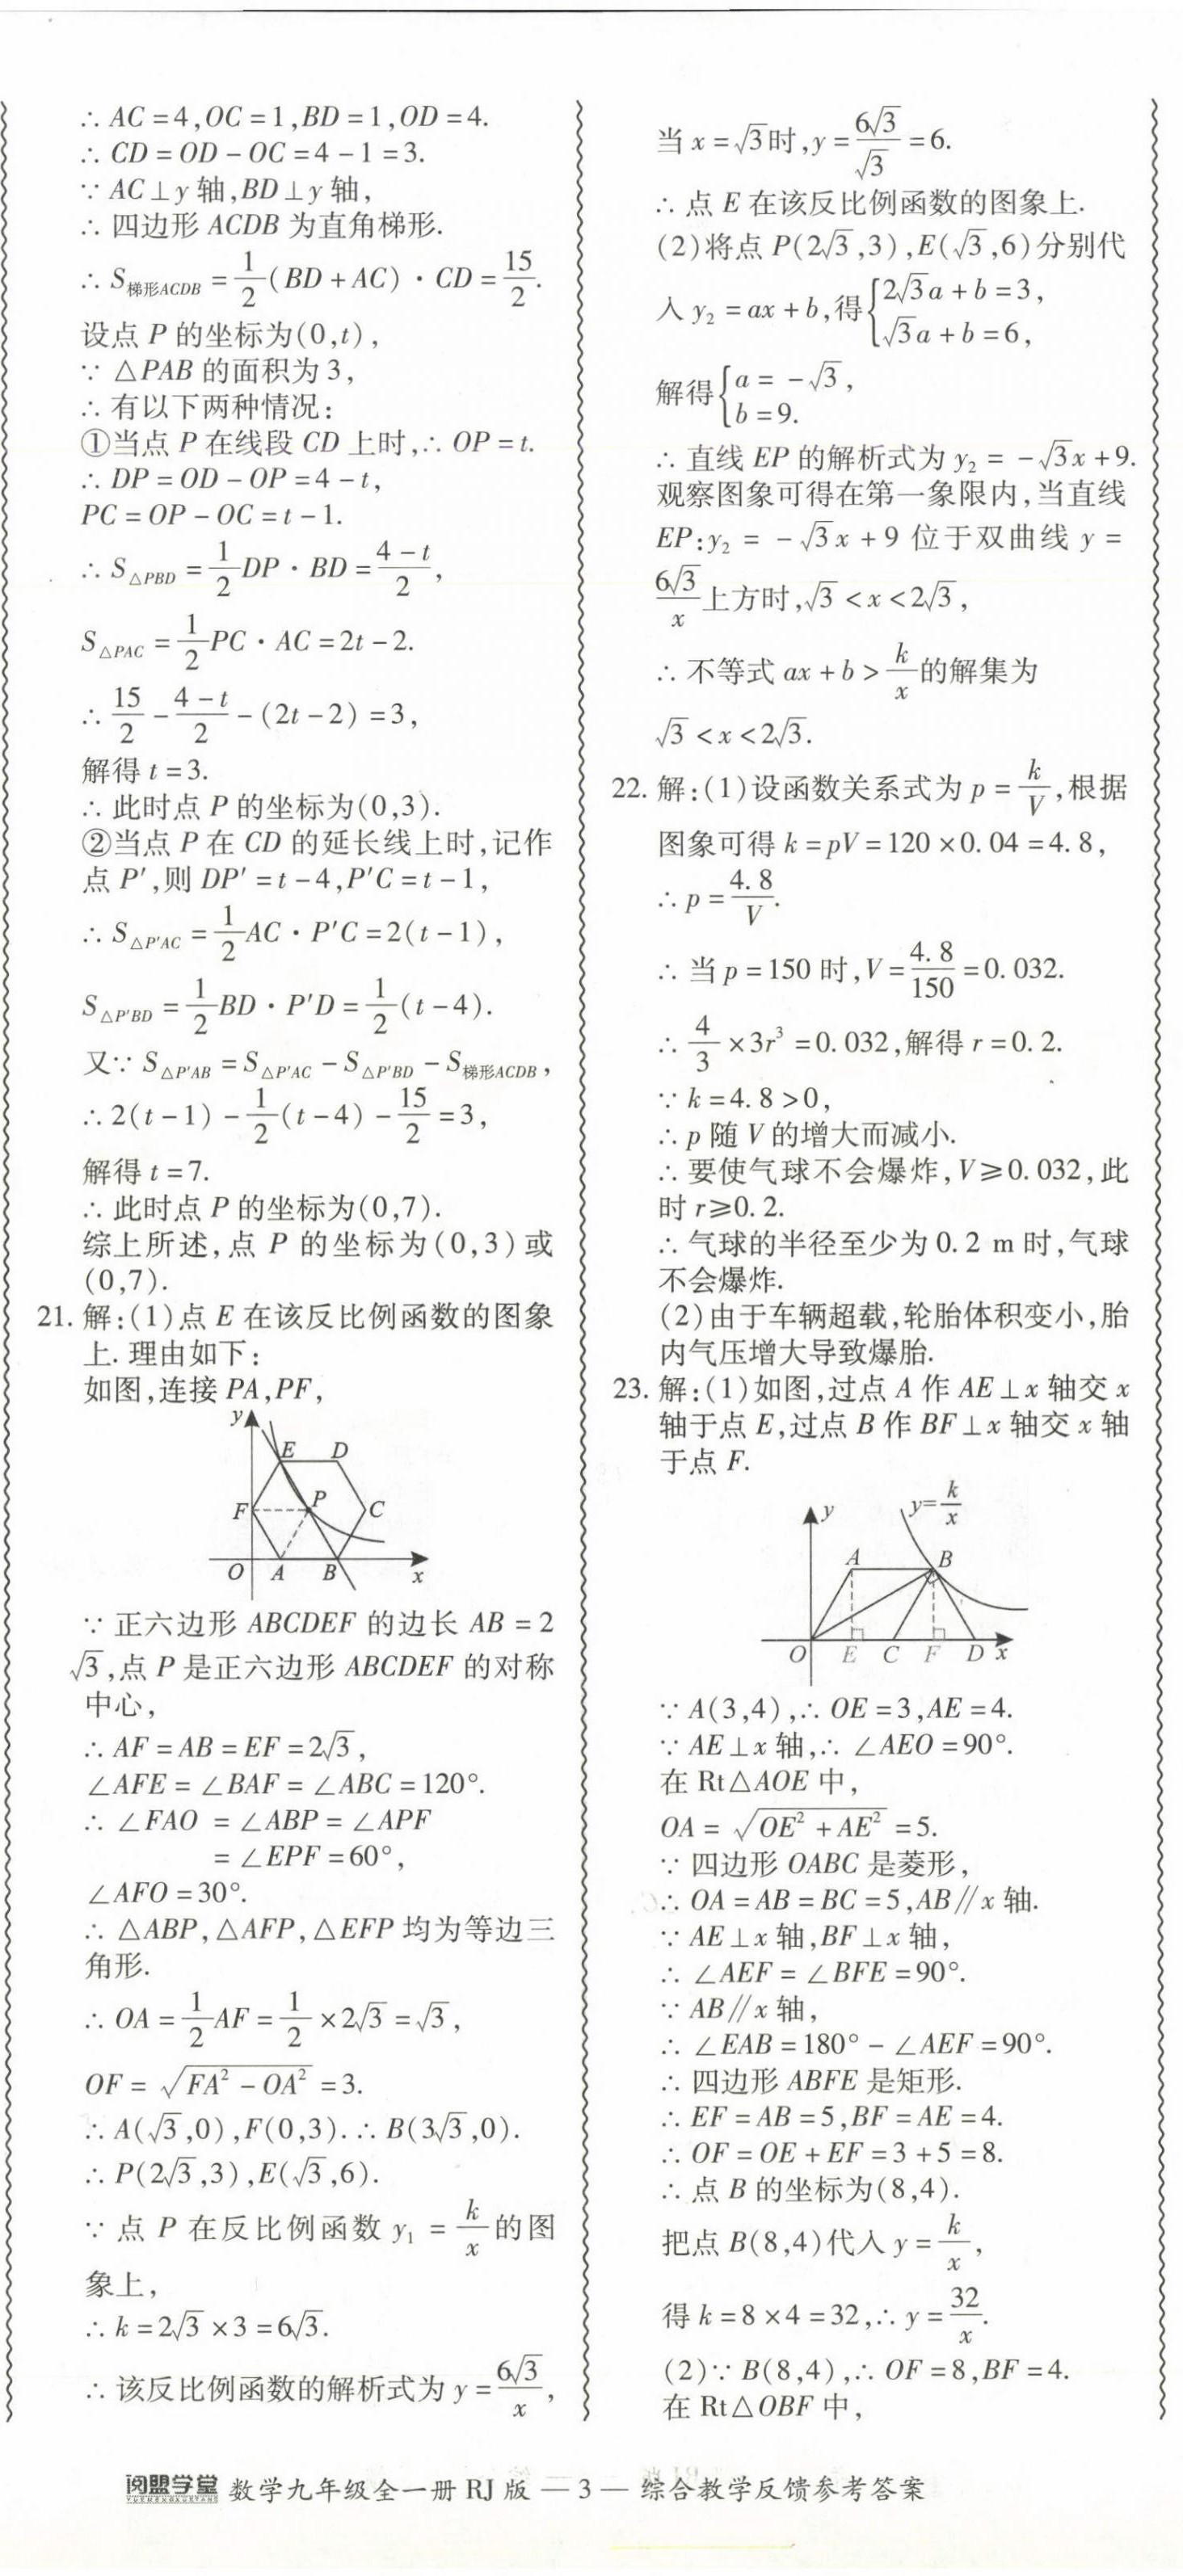 ∴ AC=4,OC=1,BD=1,OD=4.
∴ CD=OD-OC=4-1=3.
∵ AC⊥y 轴,BD⊥y 轴,
∴ 四边形 ACDB 为直角梯形.
∴ S梯形ACDB = 1/2(BD+AC)·CD = 15/2.
设点 P 的坐标为(0,t),
∵ △PAB 的面积为 3,
∴ 有以下两种情况:
①当点 P 在线段 CD 上时,∴ OP=t.
∴ DP=OD-OP=4-t,
PC=OP-OC=t-1.
∴ S△PBD = 1/2 DP·BD = (4-t)/2,
S△PAC = 1/2 PC·AC=2t-2.
∴ 15/2 - (4-t)/2 - (2t-2)=3,
解得 t=3.
∴ 此时点 P 的坐标为(0,3).
②当点 P 在 CD 的延长线上时,记作
点 P′,则 DP′=t-4,P′C=t-1,
∴ S△P′AC = 1/2 AC·P′C=2(t-1),
S△P′BD = 1/2 BD·P′D = 1/2(t-4).
又∵ S△P′AB = S△P′AC - S△P′BD - S梯形ACDB,
∴ 2(t-1) - 1/2(t-4) - 15/2 = 3,
解得 t=7.
∴ 此时点 P 的坐标为(0,7).
综上所述,点 P 的坐标为(0,3)或
(0,7).
21. 解:(1)点 E 在该反比例函数的图象
上. 理由如下:
如图,连接 PA,PF,
y
E D
F P C
O A B x
∵ 正六边形 ABCDEF 的边长 AB=2
√3,点 P 是正六边形 ABCDEF 的对称
中心,
∴ AF=AB=EF=2√3,
∠AFE=∠BAF=∠ABC=120°.
∴ ∠FAO =∠ABP=∠APF
=∠EPF=60°,
∠AFO=30°.
∴ △ABP,△AFP,△EFP 均为等边三
角形.
∴ OA = 1/2 AF = 1/2 ×2√3 = √3,
OF = √(FA²-OA²) = 3.
∴ A(√3,0),F(0,3). ∴ B(3√3,0).
∴ P(2√3,3),E(√3,6).
∵ 点 P 在反比例函数 y₁ = k/x 的图
象上,
∴ k=2√3×3=6√3.
∴ 该反比例函数的解析式为 y = 6√3/x,
当 x=√3时,y = 6√3/√3 = 6.
∴ 点 E 在该反比例函数的图象上.
(2)将点 P(2√3,3),E(√3,6)分别代
入 y₂=ax+b,得{2√3a+b=3,
√3a+b=6,
解得{a=-√3,
b=9.
∴ 直线 EP 的解析式为 y₂=-√3x+9.
观察图象可得在第一象限内,当直线
EP:y₂ = -√3x+9 位于双曲线 y =
6√3/x 上方时,√3<x<2√3,
∴ 不等式 ax+b > k/x 的解集为
√3<x<2√3.
22. 解:(1)设函数关系式为 p = k/V,根据
图象可得 k=pV=120×0.04=4.8,
∴ p = 4.8/V.
∴ 当 p=150 时,V = 4.8/150 = 0.032.
∴ 4/3 ×3r³=0.032,解得 r=0.2.
∵ k=4.8>0,
∴ p 随 V 的增大而减小.
∴ 要使气球不会爆炸,V≥0.032,此
时 r≥0.2.
∴ 气球的半径至少为 0.2 m 时,气球
不会爆炸.
(2)由于车辆超载,轮胎体积变小,胎
内气压增大导致爆胎.
23. 解:(1)如图,过点 A 作 AE⊥x 轴交 x
轴于点 E,过点 B 作 BF⊥x 轴交 x 轴
于点 F.
y y=k/x
A B
O E C F D x
∵ A(3,4),∴ OE=3,AE=4.
∵ AE⊥x 轴,∴ ∠AEO=90°.
在 Rt△AOE 中,
OA = √(OE²+AE²) = 5.
∵ 四边形 OABC 是菱形,
∴ OA=AB=BC=5,AB∥x 轴.
∵ AE⊥x 轴,BF⊥x 轴,
∴ ∠AEF=∠BFE=90°.
∵ AB∥x 轴,
∴ ∠EAB=180°-∠AEF=90°.
∴ 四边形 ABFE 是矩形.
∴ EF=AB=5,BF=AE=4.
∴ OF=OE+EF=3+5=8.
∴ 点 B 的坐标为(8,4).
把点 B(8,4)代入 y = k/x,
得 k=8×4=32,∴ y = 32/x.
(2)∵ B(8,4),∴ OF=8,BF=4.
在 Rt△OBF 中,
阅盟学堂 YUEMENGXUETANG 数学九年级全一册 RJ 版 — 3 — 综合教学反馈参考答案